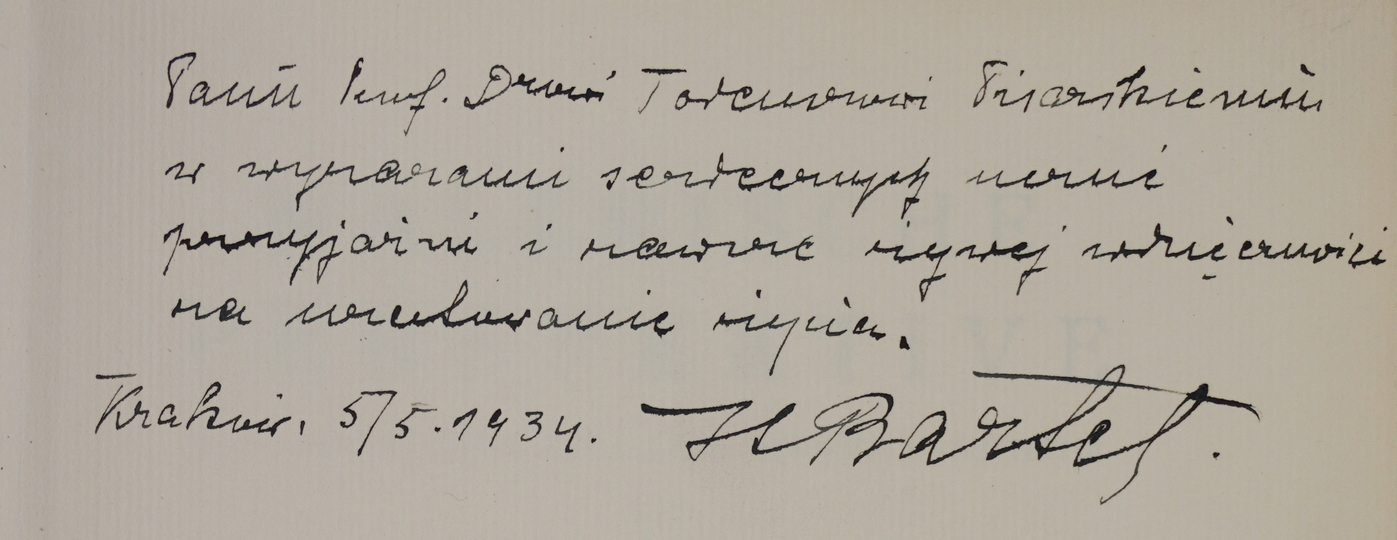 Panu Prof. Drowi Tadeuszowi Pisarskiemu
w wyrazami serdecznych uczuć
przyjaźni i zawsze żywej wdzięczności
na uratowanie życia.
Kraków, 5/5.1934. K Bartel.